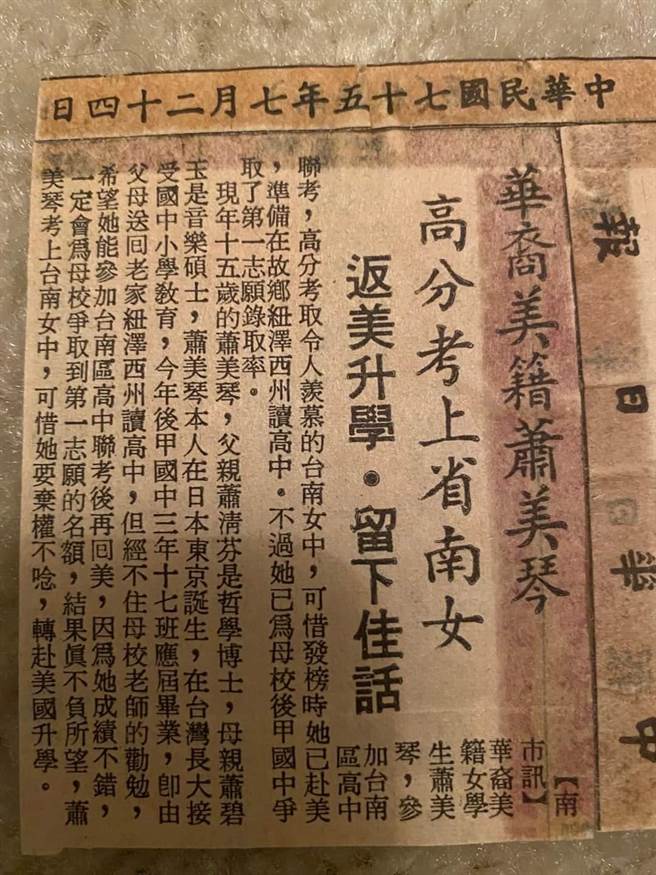 中華民國七十五年七月二十四日
中華日報
華裔美籍蕭美琴
高分考上省南女
返美升學•留下佳話
【南
市訊】
華裔美
籍女學
生蕭美
琴，參
加台南
區高中
聯考，高分考取令人羨慕的台南女中，可惜發榜時她已赴美
，準備在故鄉紐澤西州讀高中。不過她已爲母校後甲國中爭
取了第一志願錄取率。
現年十五歲的蕭美琴，父親蕭淸芬是哲學博士，母親蕭碧
玉是音樂碩士，蕭美琴本人在日本東京誕生，在台灣長大接
受國中小學敎育，今年後甲國中三年十七班應屆畢業，卽由
父母送回老家紐澤西州讀高中，但經不住母校老師的勸勉，
希望她能參加台南區高中聯考後再回美，因爲她成績不錯，
一定會爲母校爭取到第一志願的名額，結果眞不負所望，蕭
美琴考上台南女中，可惜她要棄權不唸，轉赴美國升學。